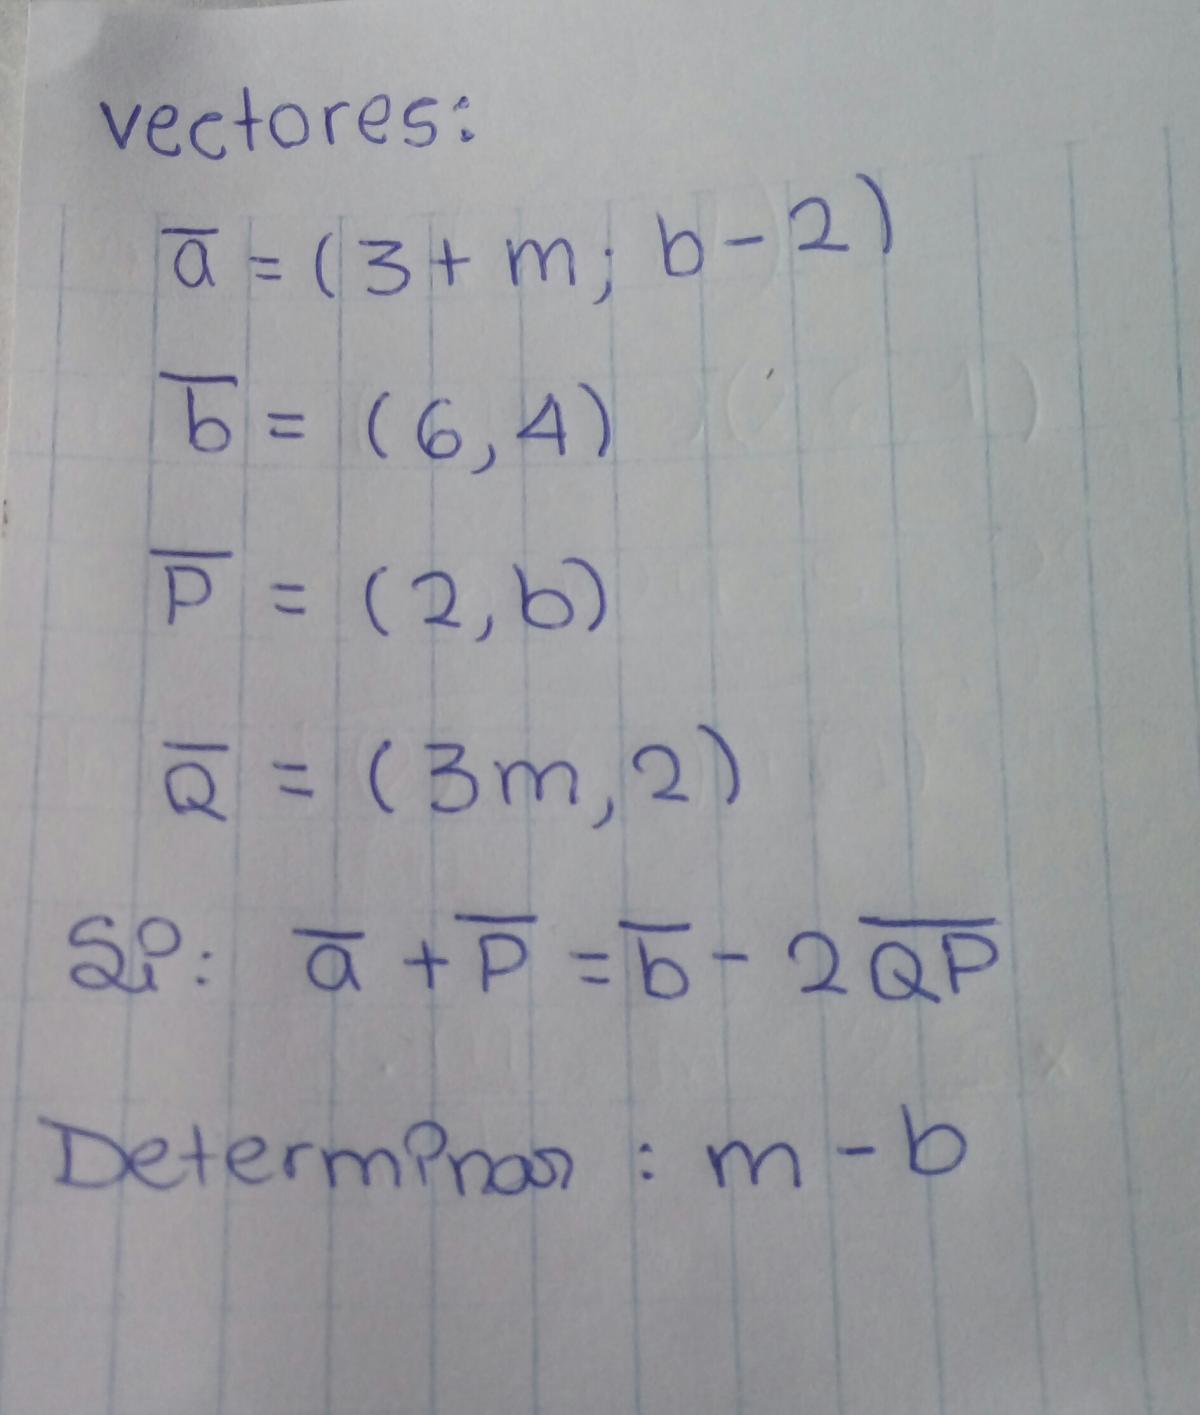 vectores:
a̅ = (3 + m; b - 2)
b̅ = (6, 4)
P̅ = (2, b)
Q̅ = (3m, 2)
Si: a̅ + P̅ = b̅ - 2 Q̅P̅
Determinar : m - b